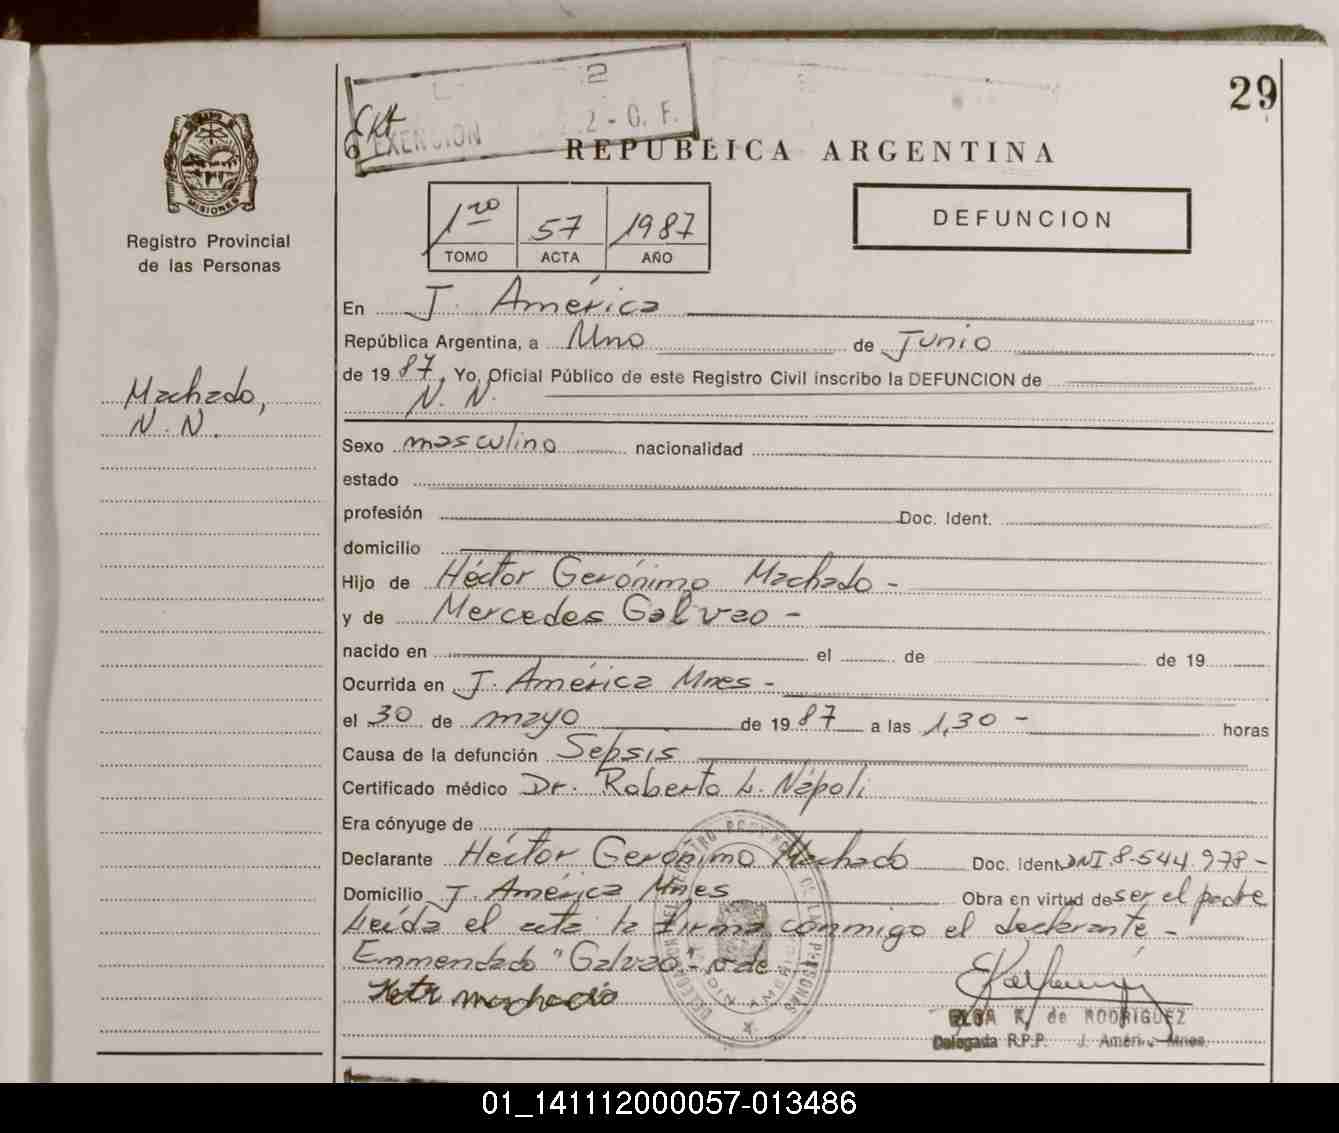 29
EXENCION 2 - O. F.
REPUBLICA ARGENTINA
MISIONES
Registro Provincial
de las Personas
1ro 57 1987
TOMO ACTA AÑO
DEFUNCION
En J. América
República Argentina, a Uno de Junio
de 1987, Yo, Oficial Público de este Registro Civil inscribo la DEFUNCION de
N. N.
Machado,
N. N.
Sexo masculino nacionalidad
estado
profesión Doc. Ident.
domicilio
Hijo de Héctor Gerónimo Machado -
y de Mercedes Galvao -
nacido en el de de 19
Ocurrida en J. América Mnes -
el 30 de mayo de 1987 a las 1,30 - horas
Causa de la defunción Sepsis
Certificado médico Dr. Roberto L. Nápoli
Era cónyuge de
Declarante Héctor Gerónimo Machado Doc. Ident. DNI.8-544.978-
Domicilio J. América Mnes Obra en virtud de ser el padre
Leída el acta la firma conmigo el declarante -
Enmendado "Galvao"
machado
ELBA R. de RODRIGUEZ
Delegada R.P.P. J. Améri Mnes.
01_141112000057-013486